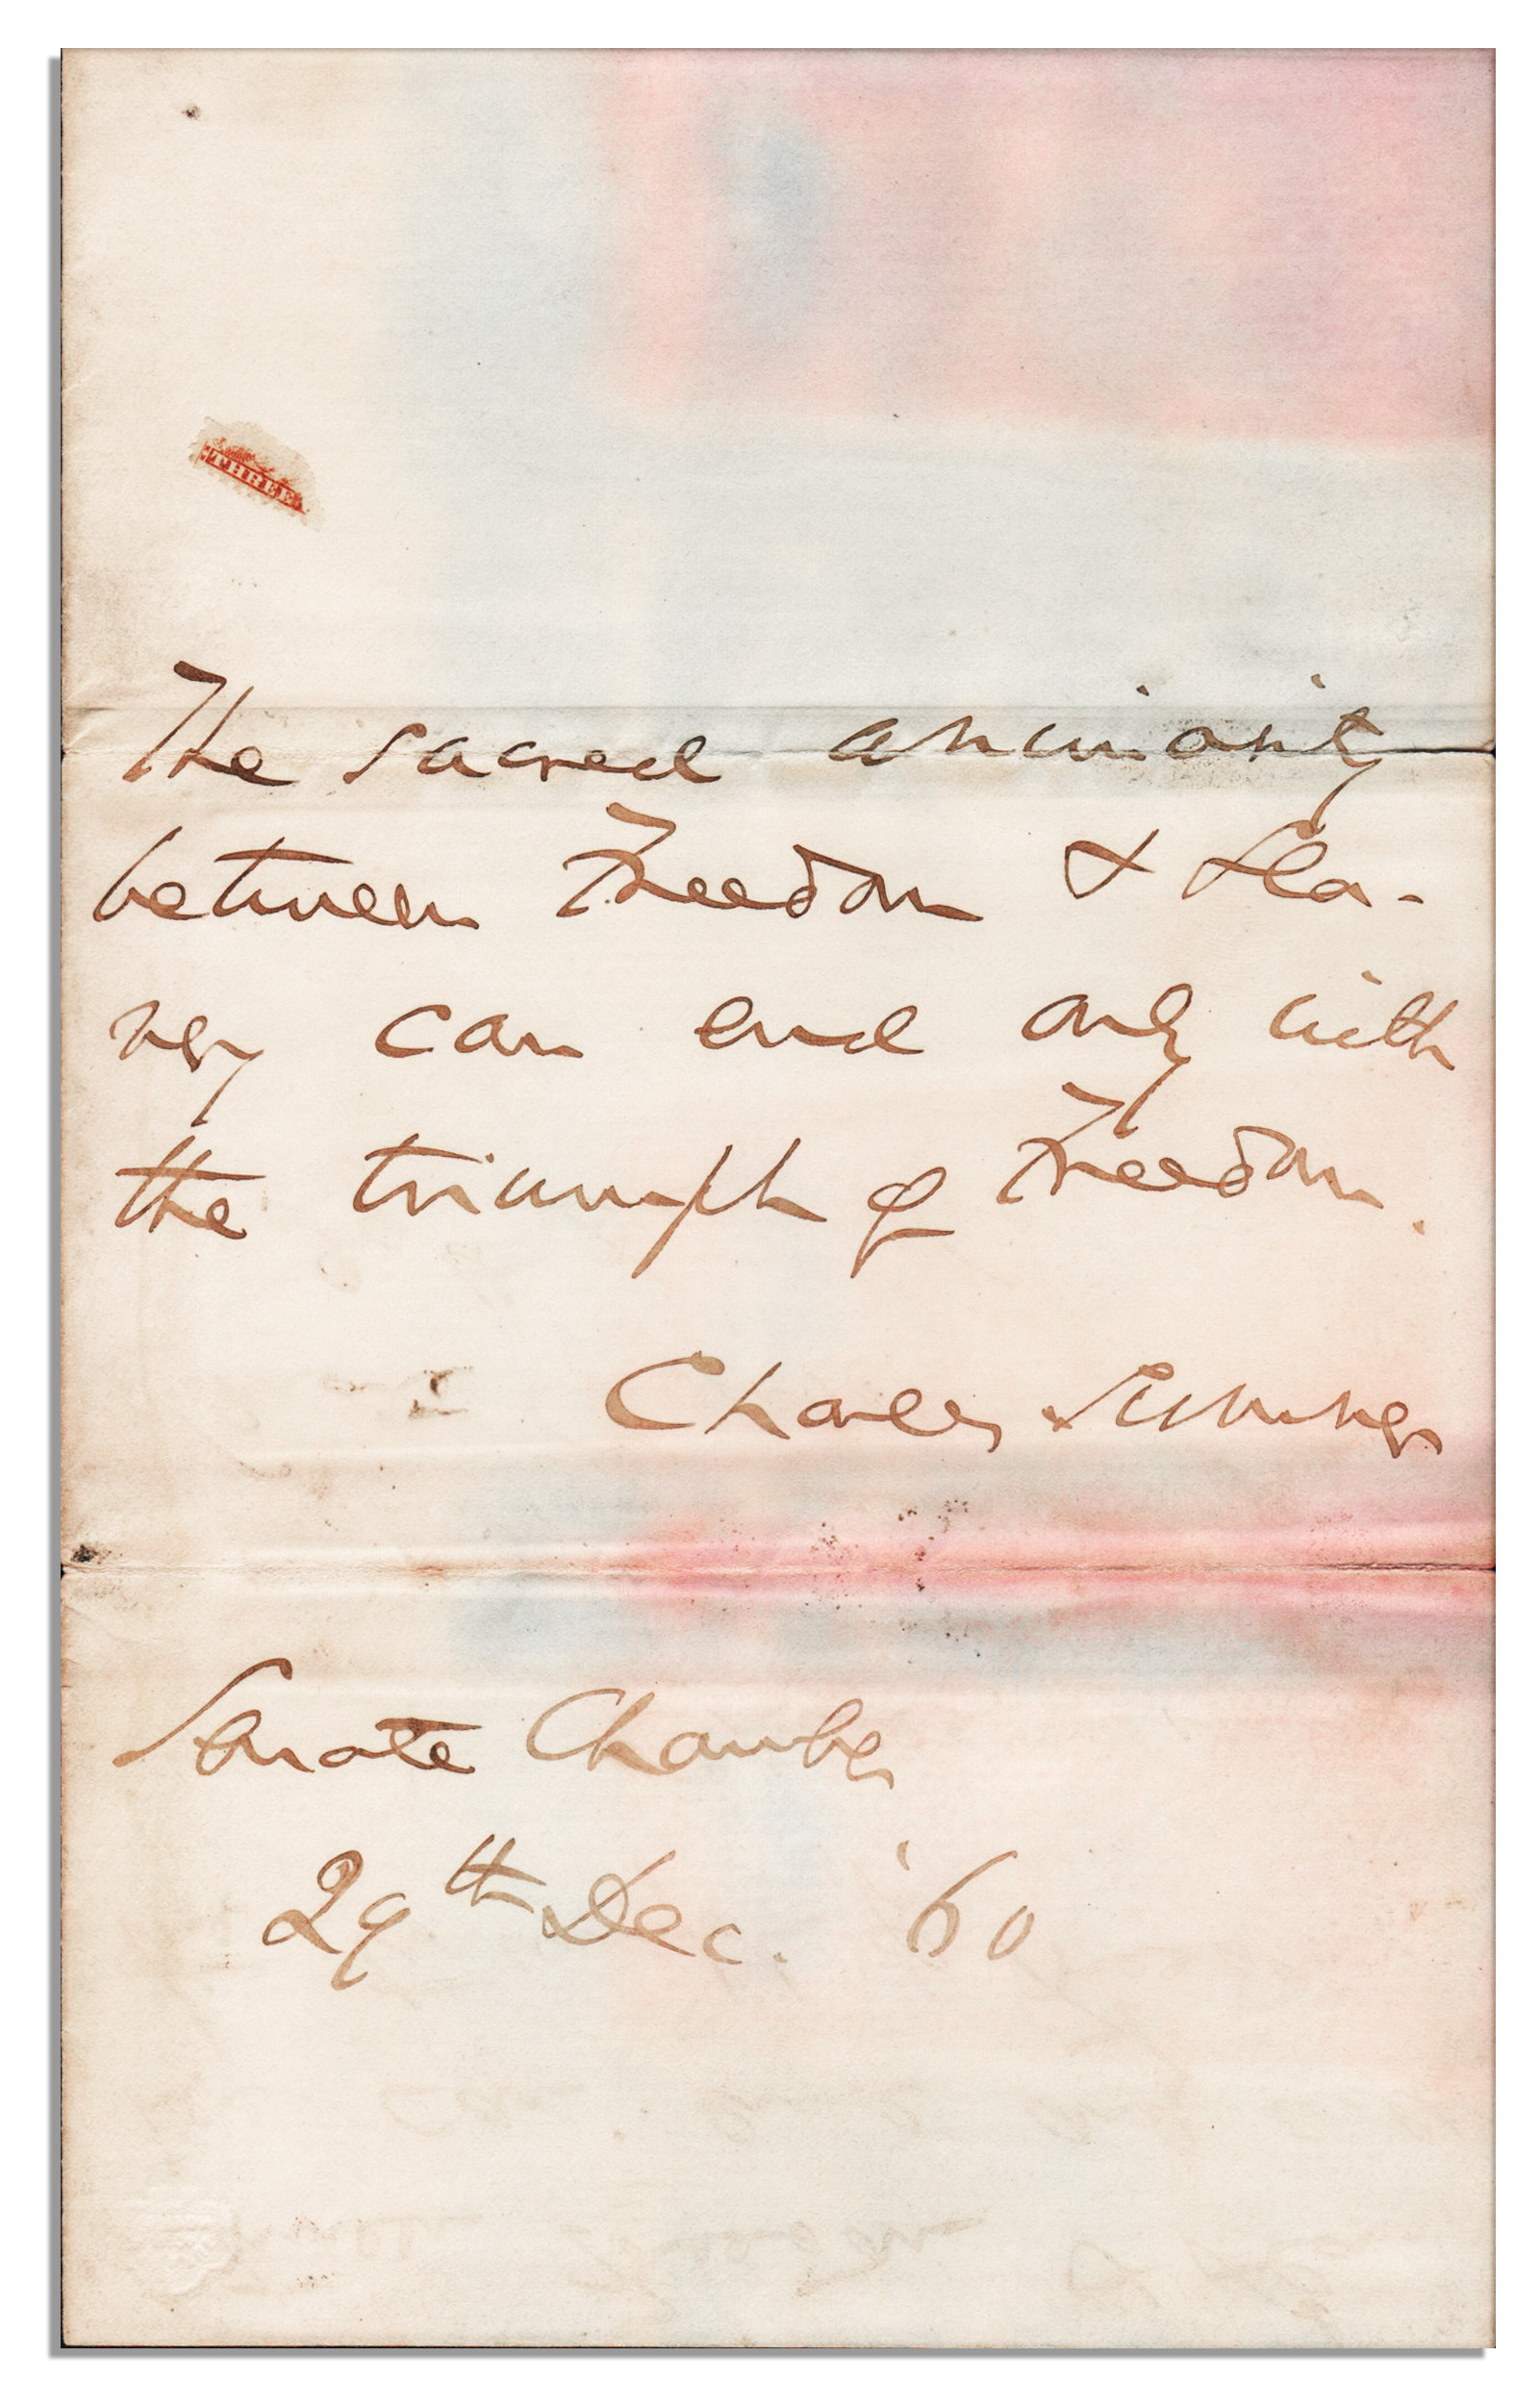 THREE
The sacred animosity
between Freedom & Sla-
very can end only with
the triumph of Freedom.
Charles Sumner
Senate Chamber
29th Dec. '60